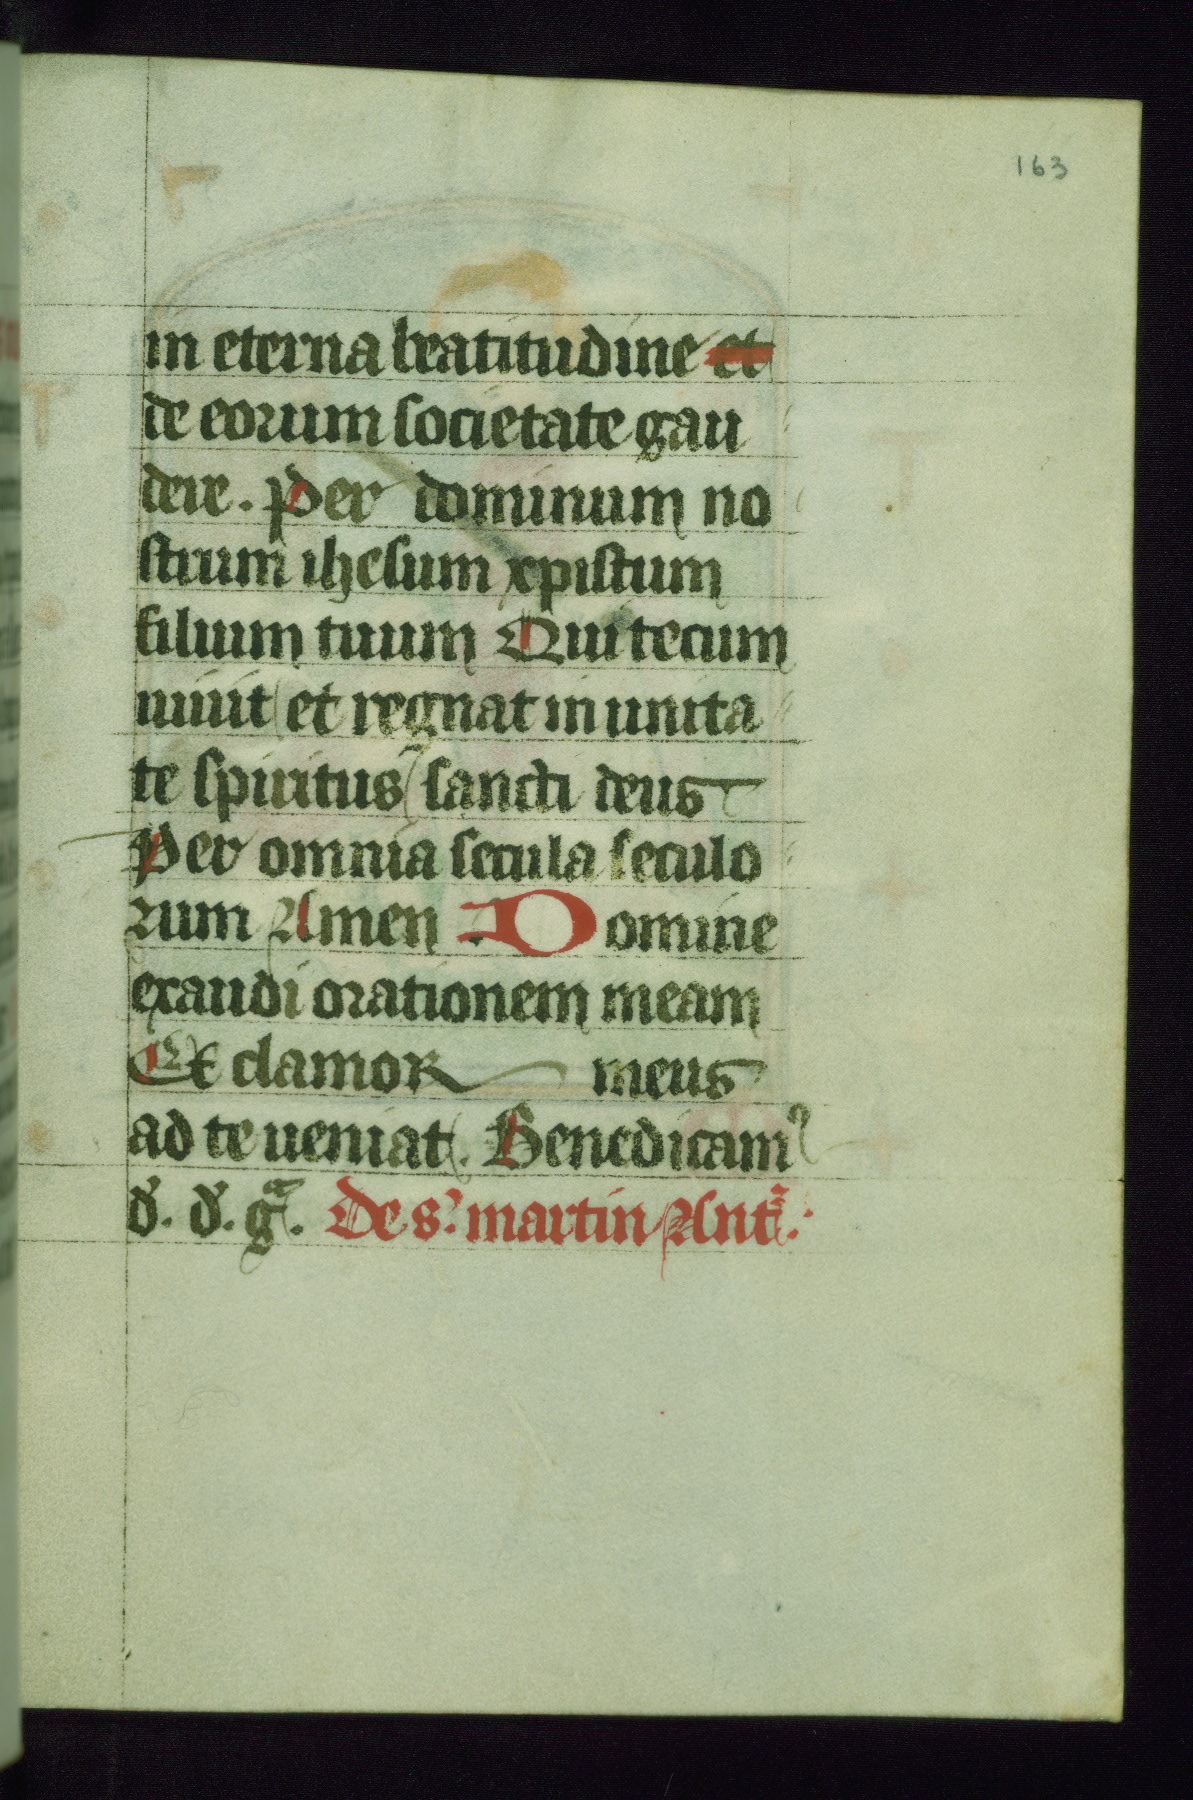 163
in eterna beatitudine et
de eorum societate gau
dere. Per dominum no
strum ihesum xpistum
filium tuum Qui tecum
uiuit et regnat in unita
te spiritus sancti deus
Per omnia secula seculo
rum Amen. Domine
exaudi orationem meam
Et clamor meus
ad te ueniat. Benedicamꝰ
d. d. gᵃ. De s. martin Ant.